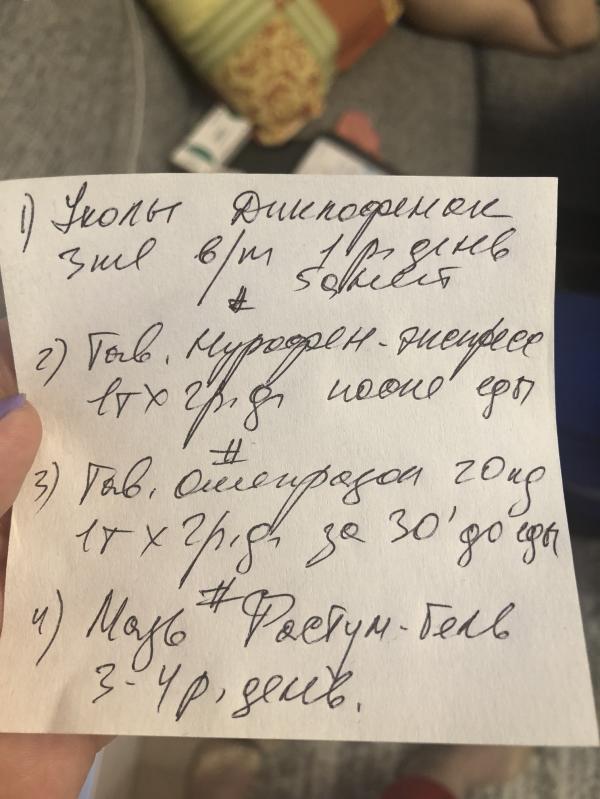 1) Уколы Диклофенак
3 мл в/м 1 р. день
# 5 дней
2) Таб. Нурофен-экспресс
1т х 2р.д. после еды
#
3) Таб. Омепразол 20 мг
1т х 2р.д. за 30' до еды
#
4) Мазь Фастум-Гель
3-4 р. день.